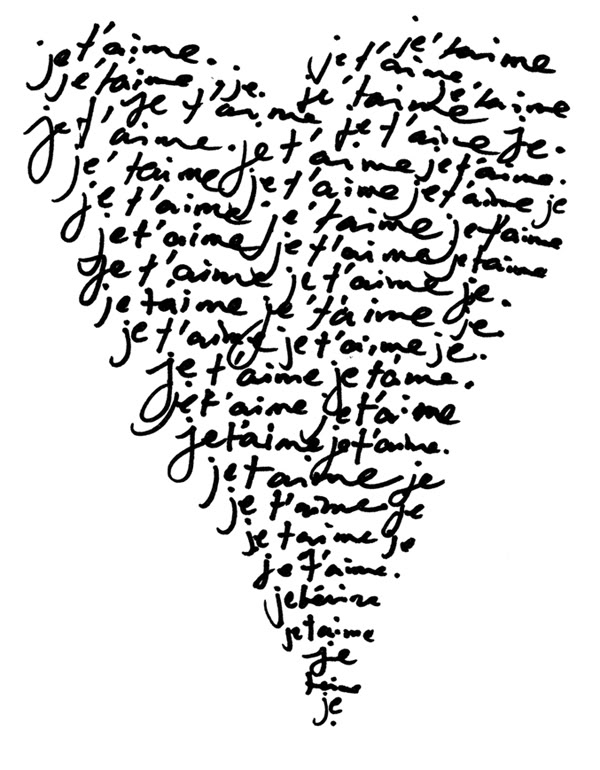 je t'aime. je t'aime je t'aime
je t'aime je. je t'aime je t'aime
je t'aime. je t'aime je t'aime je.
je t'aime je t'aime je t'aime.
je t'aime je t'aime je t'aime je
je t'aime je t'aime je t'aime
je t'aime je t'aime je taime
je t'aime je t'aime je.
je taime je t'aime je
je t'aime je t'aime je.
je t'aime je t'aime.
je t'aime je t'aime
je t'aime je t'aime.
je taime je
je t'aime je
je taime je
je t'aime.
je
je taime
je
taime
je.